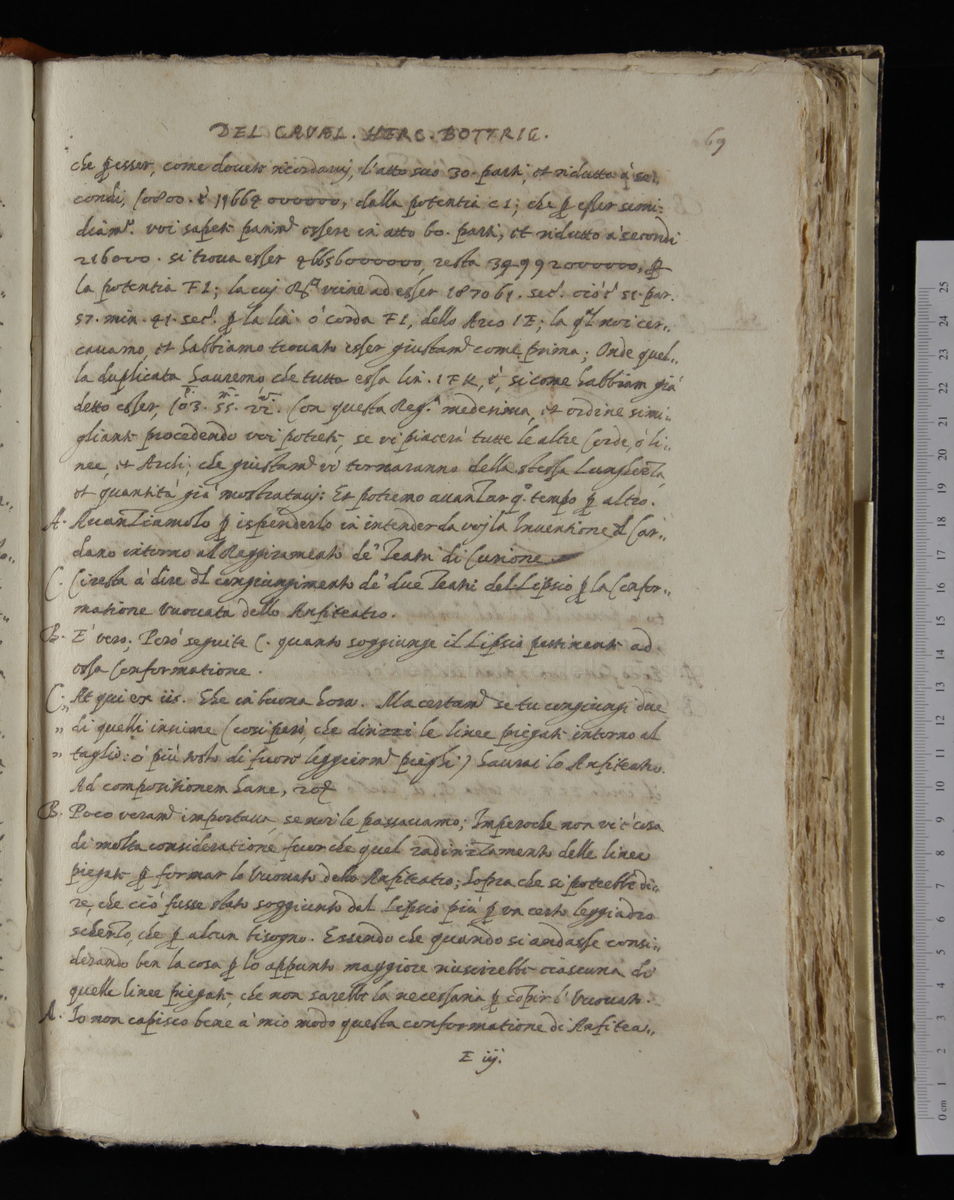 DEL CAVAL. HERC. BOTTRIG.
69
che ꝑ esser, come doueto ricordarui, l'atto suo 30. parti, et ridutto à se-
condi, 10800. è 11664 000000, dalla potentia C I; che ꝑ esser semi-
diam.º voi sapete parim.º essere in atto 60. parti, et ridutto à secondi
216000. si troua esser 46656000000, resta 34992000000, ꝑ
la potentia F I; la cuj R.ª viene ad esser 187061. sec. cio è 51. par.
57. min. 41. sec. ꝑ la lin. ò corda F I, dello Arco I E; la q.l noi cer-
cauamo, et habbiamo trouato esser giustam.º come prima; Onde quel-
la duplicata hauremo che tutta essa lin. I F K, è, si come habbiam già
detto esser, 103. 55. vi. Con questa Reg.ª medesima, et ordine simi-
gliante procedendo voi potrete, se vi piacerà tutte le altre Corde, ò li-
nee, et Archi; che giustam.º vi tornaranno della stessa lunghezza,
et quantità già mostrataui: Et potremo auanzar q.º tempo ꝑ altro.
A. Auanziamolo ꝑ ispenderlo in intender da voj la Inuentione del Car-
dano intorno al Raggiramento de' Teatri di Curione.
C. Ci resta à dire del congiungimento de' due Teatri del Lipsio ꝑ la Confor-
matione Vuouata dello Anfiteatro.
B. E' vero; Però seguite C. quanto soggiunge il Lipsio pertinente ad
essa Conformatione.
C. At qui ex iis. Ehe in buona hora. Ma certam.º se tu congiungi due
„ di quelli insieme (cosi però, che dirizzi le linee piegate intorno al
„ taglio: ò più tosto di fuori leggierm.º pieghi) haurai lo Anfiteatro.
Ad compositionem hanc,
B. Poco veram.º importaua, se noi le passauamo; Imperoche non vi è cosa
di molta consideratione fuor che quel radirizzamento delle linee
piegate ꝑ formar lo Vuouato dello Anfiteatro; Sopra che si potrebbe di-
re, che ciò fusse stato soggiunto dal Lipsio più ꝑ vn certo leggiadro
scherzo, che ꝑ alcun bisogno. Essendo che quando si andasse consi-
derando ben la cosa ꝑ lo appunto maggiore riuscirebbe ciascuna di
quelle linee piegate, che non sarebbe la necessaria ꝑ compir l'Vuouato.
A. Io non capisco bene à mio modo questa conformatione di Anfitea-
E iij.